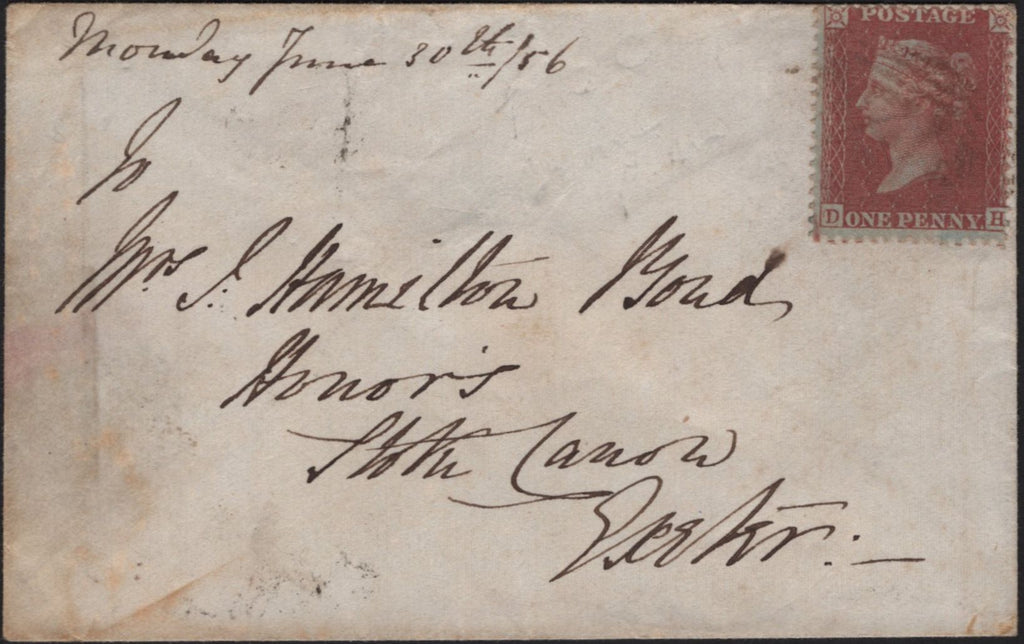 Monday June 30th/56
POSTAGE
D ONE PENNY. H
To
Mrs J. Hamilton Bond,
Honor's
Stoke Canon
Exeter. —